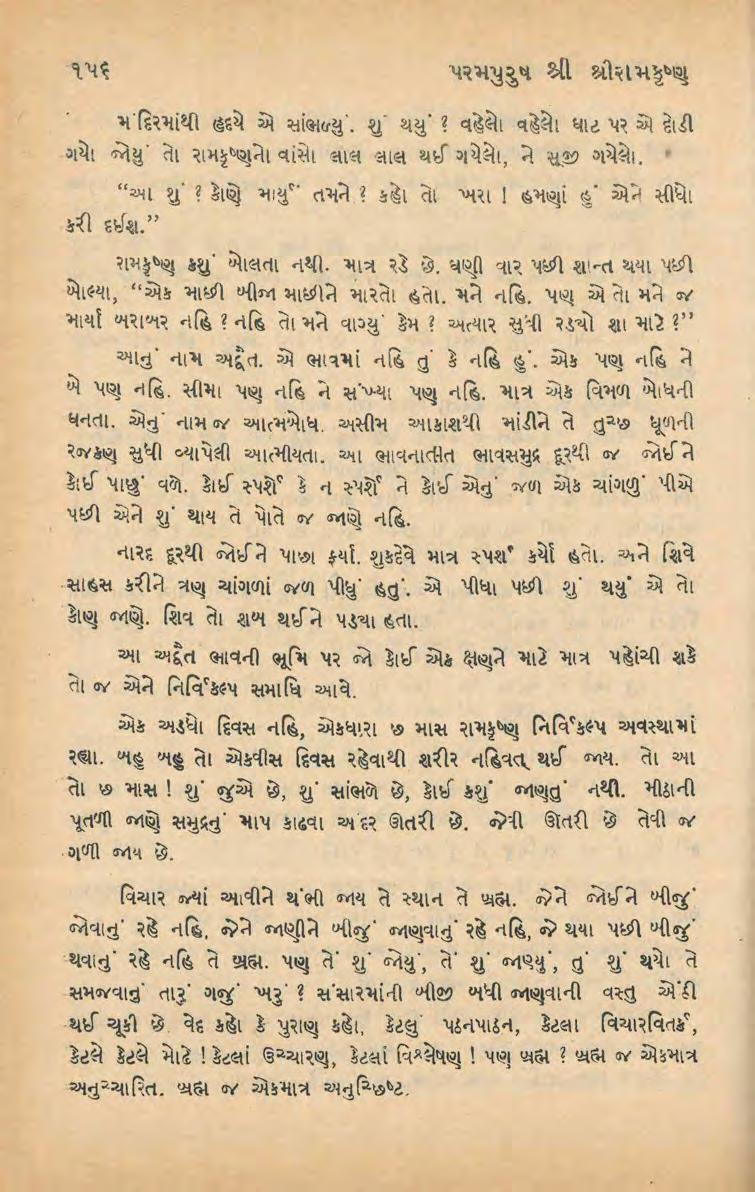 ૧૫૬ પરમપુરુષ શ્રી શ્રીરામકૃષ્ણ
મંદિરમાંથી હૃદયે એ સાંભળ્યું. શું થયું ? વહેલો વહેલો ઘાટ પર એ દોડી
ગયો જોયું તો રામકૃષ્ણનો વાંસો લાલ લાલ થઈ ગયેલો, ને સૂજી ગયેલો.
“આ શું ? કોણે માર્યું તમને ? કહો તો ખરા ! હમણાં હું એને સીધો
કરી દઈશ.”
રામકૃષ્ણ કશું બોલતા નથી. માત્ર રડે છે. ઘણી વાર પછી શાન્ત થયા પછી
બોલ્યા, “એક માછી બીજા માછીને મારતો હતો. મને નહિ. પણ એ તો મને જ
માર્યો બરાબર નહિ ? નહિ તો મને વાગ્યું કેમ ? અત્યાર સુધી રડ્યો શા માટે ?”
આનું નામ અદ્વૈત. એ ભાવમાં નહિ તું કે નહિ હું. એક પણ નહિ ને
બે પણ નહિ. સીમા પણ નહિ ને સંખ્યા પણ નહિ. માત્ર એક વિમળ બોધની
ઘનતા. એનું નામ જ આત્મબોધ. અસીમ આકાશથી માંડીને તે તુચ્છ ધૂળની
રજકણ સુધી વ્યાપેલી આત્મીયતા. આ ભાવનાતીત ભાવસમુદ્ર દૂરથી જ જોઈને
કોઈ પાછું વળે. કોઈ સ્પર્શે કે ન સ્પર્શે ને કોઈ એનું જળ એક ચાંગળું પીએ
પછી એને શું થાય તે પોતે જ જાણે નહિ.
નારદ દૂરથી જોઈને પાછા ફર્યા. શુકદેવે માત્ર સ્પર્શ કર્યો હતો. અને શિવે
સાહસ કરીને ત્રણ ચાંગળાં જળ પીધું હતું. એ પીધા પછી શું થયું એ તો
કોણ જાણે. શિવ તો શબ થઈને પડ્યા હતા.
આ અદ્વૈત ભાવની ભૂમિ પર જો કોઈ એક ક્ષણને માટે માત્ર પહોંચી શકે
તો જ એને નિર્વિકલ્પ સમાધિ આવે.
એક અડધો દિવસ નહિ, એકધારા છ માસ રામકૃષ્ણ નિર્વિકલ્પ અવસ્થામાં
રહ્યા. બહુ બહુ તો એકવીસ દિવસ રહેવાથી શરીર નહિવત્ થઈ જાય. તો આ
તો છ માસ ! શું જુએ છે, શું સાંભળે છે, કોઈ કશું જાણતું નથી. મીઠાની
પૂતળી જાણે સમુદ્રનું માપ કાઢવા અંદર ઊતરી છે. જેવી ઊતરી છે તેવી જ
ગળી જાય છે.
વિચાર જ્યાં આવીને થંભી જાય તે સ્થાન તે બ્રહ્મ. જેને જોઈને બીજું
જોવાનું રહે નહિ, જેને જાણીને બીજું જાણવાનું રહે નહિ, જે થયા પછી બીજું
થવાનું રહે નહિ તે બ્રહ્મ. પણ તેં શું જોયું, તેં શું જાણ્યું, તું શું થયો તે
સમજવાનું તારું ગજું ખરું ? સંસારમાંની બીજી બધી જાણવાની વસ્તુ એંઠી
થઈ ચૂકી છે. વેદ કહો કે પુરાણ કહો, કેટલું પઠનપાઠન, કેટલા વિચારવિતર્ક,
કેટલે કેટલે મોઢે ! કેટલાં ઉચ્ચારણ, કેટલાં વિશ્લેષણ ! પણ બ્રહ્મ ? બ્રહ્મ જ એકમાત્ર
અનુચ્ચારિત. બ્રહ્મ જ એકમાત્ર અનુચ્છિષ્ટ.